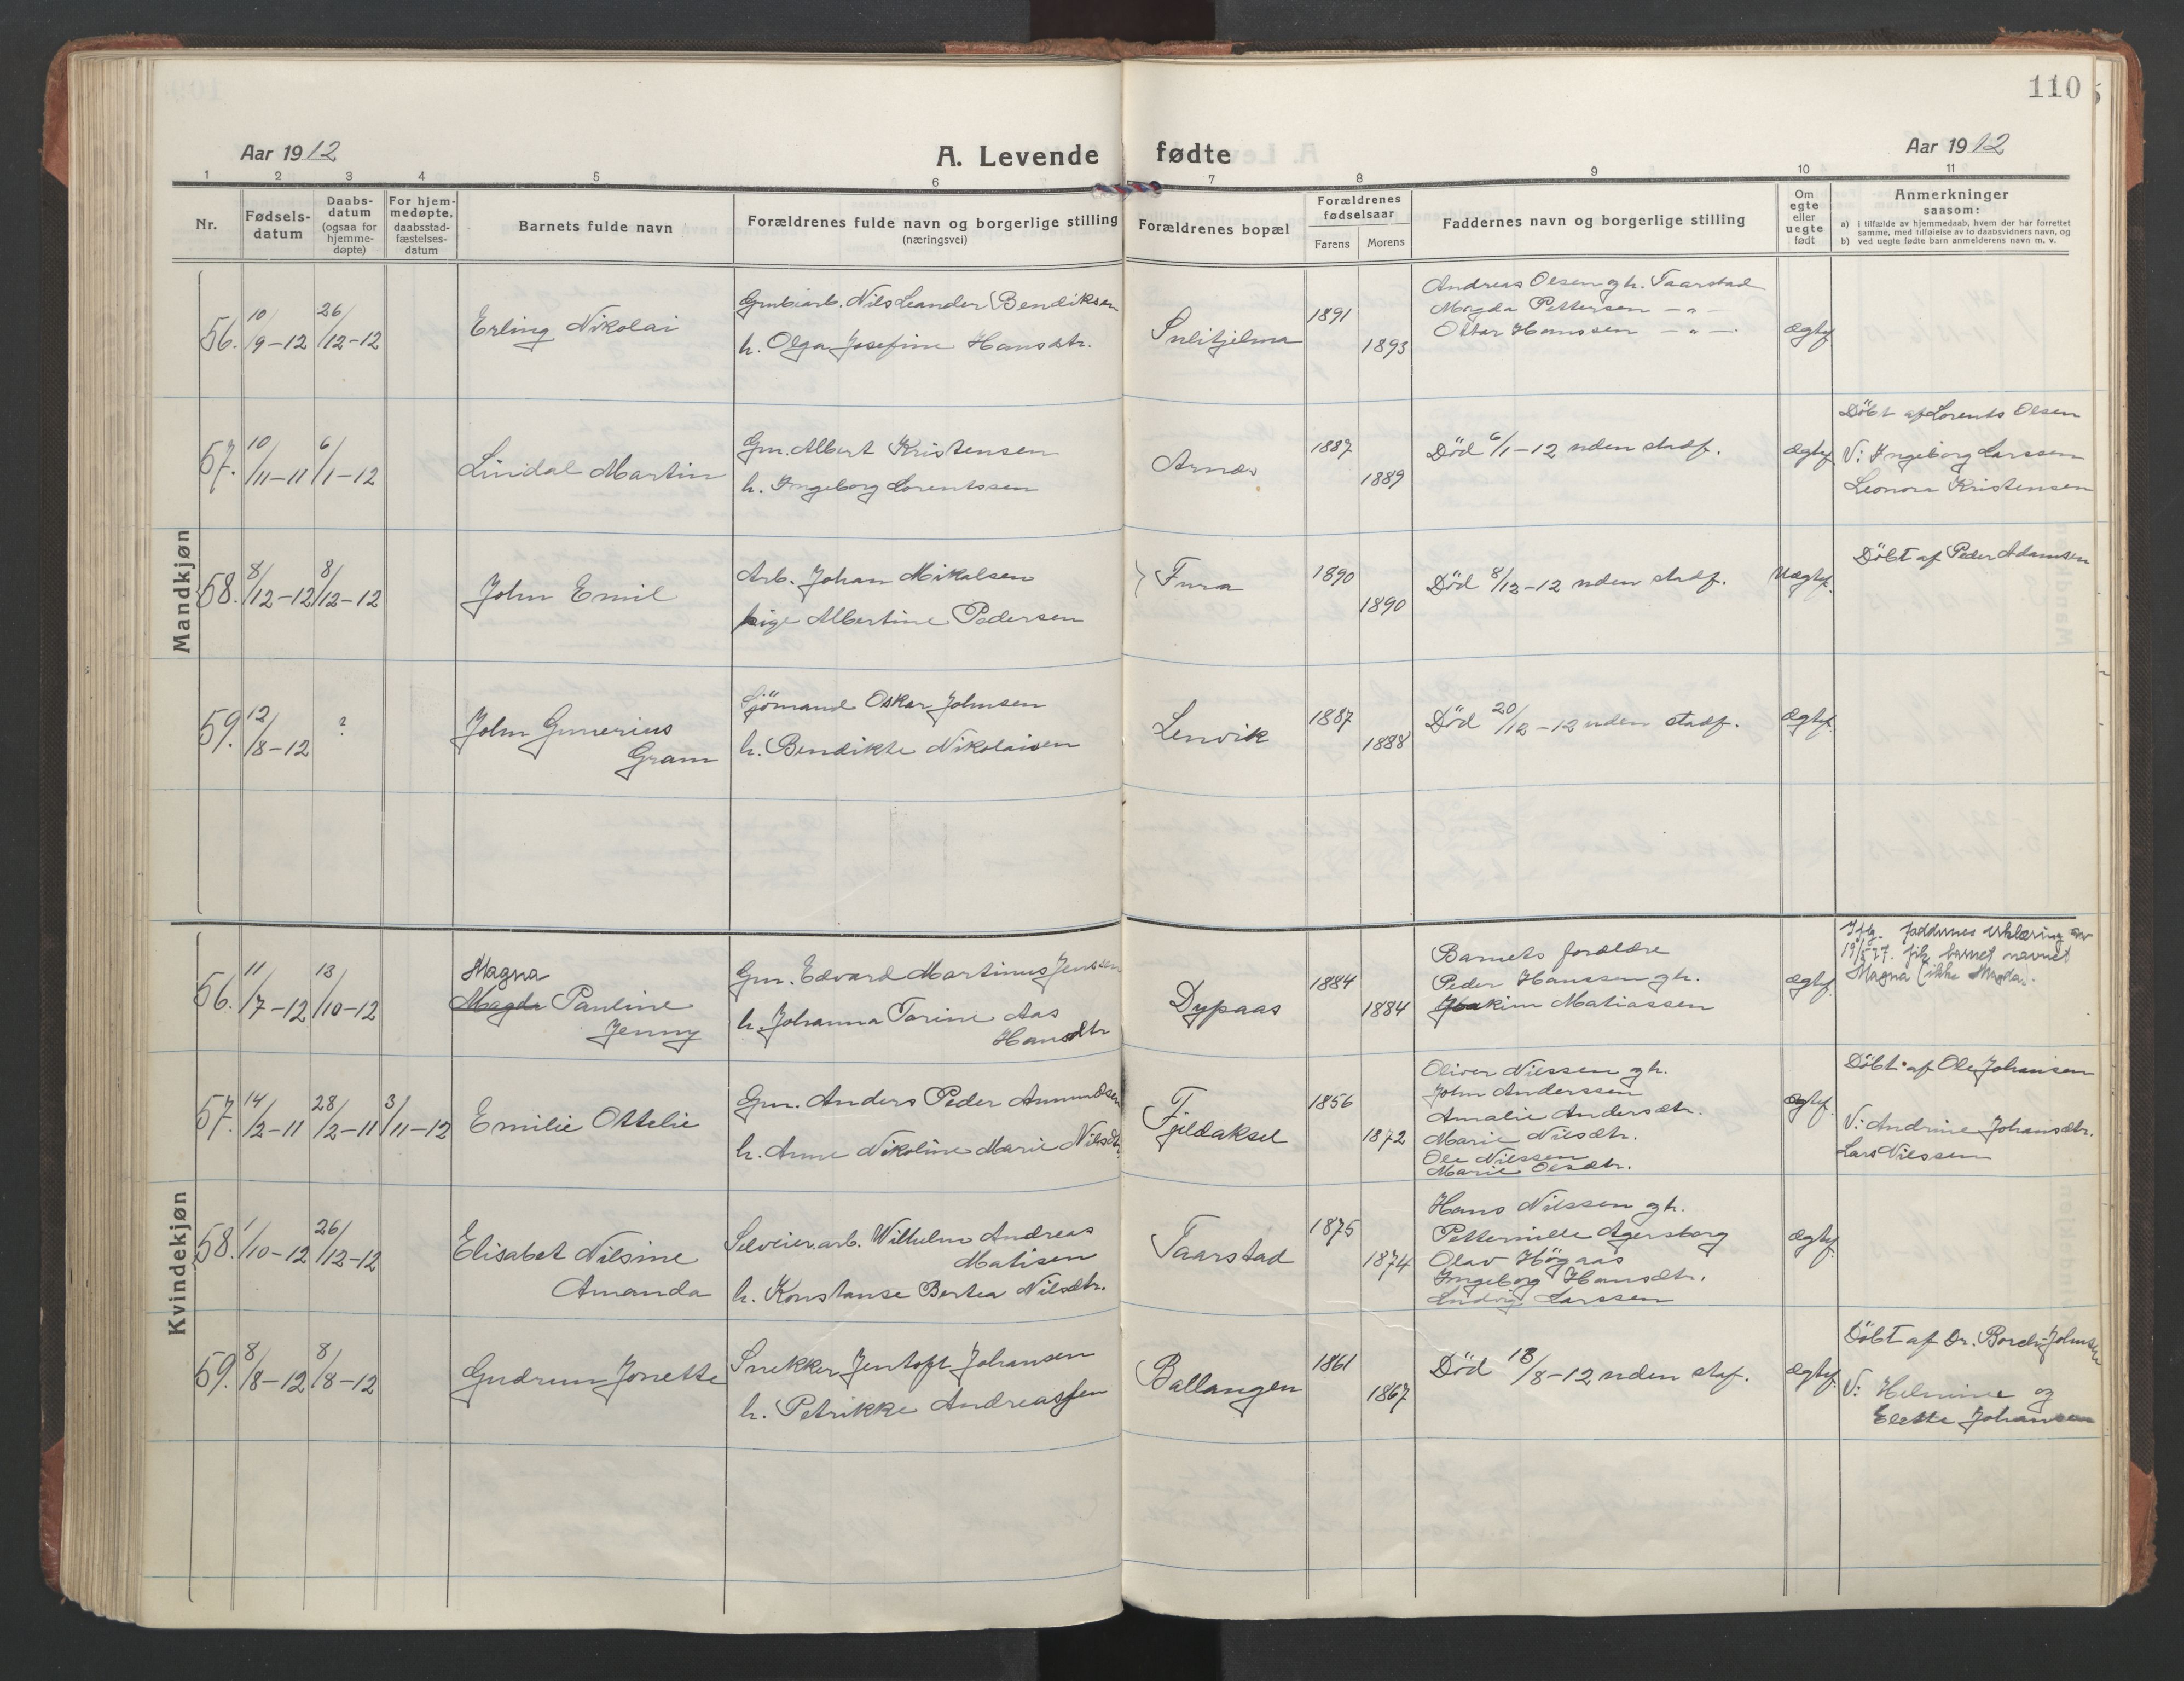 110
Aar 1912
A. Levende fødte
Aar 1912
1 2 3 4 5 6 7 8 9 10 11
Nr.
Fødsels-
datum
Daabs-
datum
(ogsaa for
hjemme-
døpte)
For hjem-
medøpte,
daabsstad-
fæstelses-
datum
Barnets fulde navn
Forældrenes fulde navn og borgerlige stilling
(næringsvei)
Forældrenes bopæl
Forældrenes
fødselsaar
Farens Morens
Faddernes navn og borgerlige stilling
Om
egte
eller
uegte
født
Anmerkninger
saasom:
a) I tilfælde av hjemmedaab, hvem der har forrettet
samme, med tilføielse av to daabsvidners navn, og
b) ved uegte fødte barn anmelderens navn m. v.
Mandkjøn
56. 10/9-12 26/12-12
Erling Nikolai
Grubearb. Nils Leander Bendiksen
h. Olga Josefine Hansdtr.
Sulitjelma
1891
1893
Andreas Olsen gh. Taarstad
Magda Pettersen - " -
Ottar Hanssen - " -
ægtef.
57. 10/11-11 6/1-12
Lindal Martin
Gm. Albert Kristensen
h. Ingeborg Lorentssen
Arnes
1887
1889
Død 6/1-12 uden stadf.
ægtef.
Döbt af Lorents Olsen
V: Ingeborg Larssen
Leonora Kristensen
58. 8/12-12 8/12-12
John Emil
Arb. Johan Mikalsen
pige Albertine Pedersen
Fura
1890
1890
Død 8/12-12 uden stadf.
Uægtef.
Döbt af Peder Adamsen
59. 12/8-12 ?
John Gunerius
Gram
Sjömand Oskar Johnsen
h. Bendikte Nikolaisen
Lenvik
1887
1888
Död 20/12-12 uden stadf.
ægtef.
Kvindekjøn
56. 11/7-12 13/10-12
Magna
Magda Pauline
Jenny
Gm. Edvard Martinus Jenssen
h. Johanna Torine Aas
Hansdtr
Dypaas
1884
1884
Barnets forældre
Peder Hanssen gh.
Joakim Matiassen
ægtef.
Iflg. faddernes erklæring av
19/5 27. fik barnet navnet
Magna (ikke Magda.
57. 14/2-11 28/2-11 3/11-12
Emilie Ottelie
Gm. Anders Peder Amundsen
h. Anne Nikoline Marie Nilsdtr.
Fjeldaksel
1856
1872
Oliver Nilssen gh.
John Anderssen
Amalie Andersdtr.
Marie Nilsdtr.
Ole Nilssen
Marie Olsdtr.
ægtef.
Döbt af Ole Johansen
V: Andrine Johansdtr.
Lars Nilssen
58. 1/10-12 26/12-12
Elisabet Nilsine
Amanda
Selveier.arb. Wilhelm Andreas
Matisen
h. Konstanse Bertea Nilsdtr.
Taarstad
1875
1874
Hans Nilssen gh.
Petternille Agersborg
Olav Høgaas
Ingeborg Hansdtr.
Ludvig Larssen
ægtef.
59. 8/8-12 8/8-12
Gudrun Jonette
Snekker Jentoft Johansen
h. Petrikke Andreassen
Ballangen
1861
1867
Död 13/8-12 uden staf.
ægtef.
Döbt af Dr. Borch-Johnsen
V: Helmine og
Elette Johansen